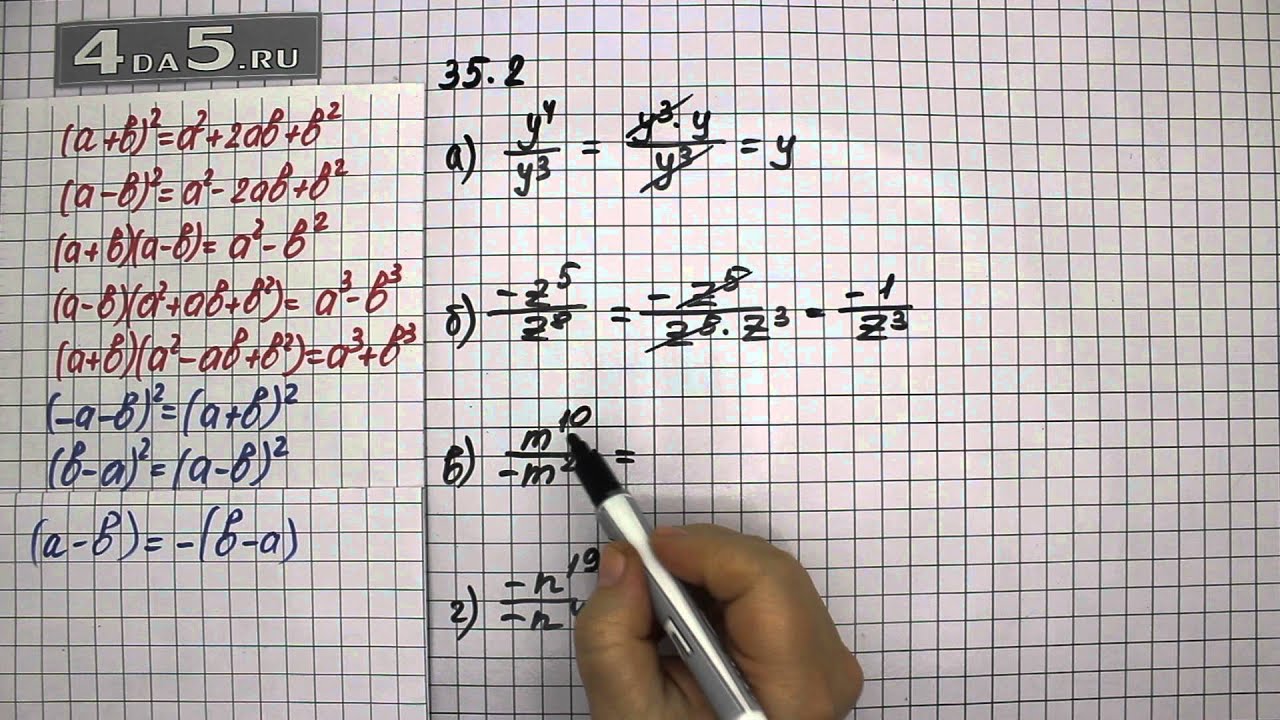 4DA5.RU
(a+b)²=a²+2ab+b²
(a-b)²=a²-2ab+b²
(a+b)(a-b)=a²-b²
(a-b)(a²+ab+b²)=a³-b³
(a+b)(a²-ab+b²)=a³+b³
(-a-b)²=(a+b)²
(b-a)²=(a-b)²
(a-b)=-(b-a)
35.2
а) y⁴/y³ = y³·y/y³ = y
б) -z⁵/z⁸ = -z⁵/z⁵·z³ = -1/z³
в) m¹⁰/-m² =
г) -n¹⁹/-n